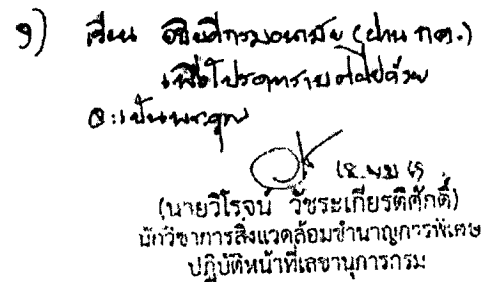 ๑) เรียน อธิบดีกรมอนามัย (ผ่าน กค.)
เพื่อโปรดทราบ ต่อไปด้วย
จะเป็นพระคุณ
(นายวิโรจน์ วัชระเกียรติศักดิ์)
นักวิชาการสิ่งแวดล้อมชำนาญการพิเศษ
ปฏิบัติหน้าที่เลขานุการกรม